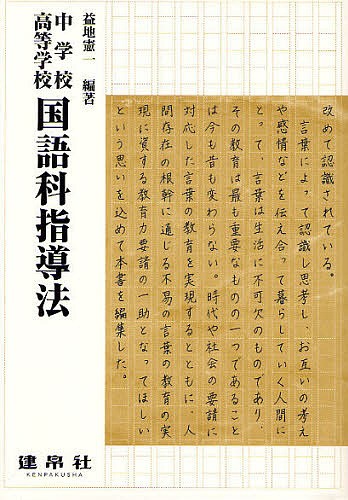 益地憲一 編著
中学校
高等学校
国語科指導法
改めて認識されている。
言葉によって認識し思考し、お互いの考え
や感情などを伝え合って暮らしていく人間に
とって、言葉は生活に不可欠のものであり、
その教育は最も重要なものの一つであること
は今も昔も変わらない。時代や社会の要請に
対応した言葉の教育を実現するとともに、人
間存在の根幹に通じる不易の言葉の教育の実
現に資する教育力要請の一助となってほしい
という思いを込めて本書を編集した。
建帛社
KENPAKUSHA